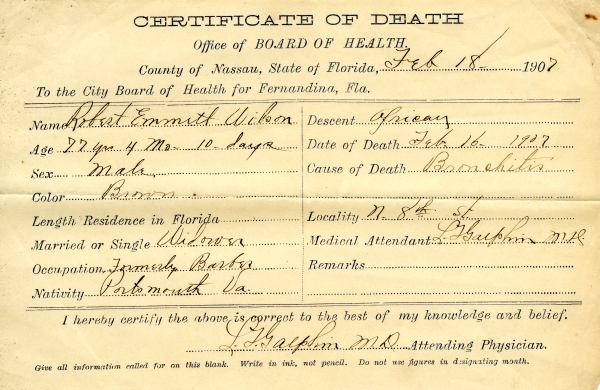 CERTIFICATE OF DEATH
Office of BOARD OF HEALTH,
County of Nassau, State of Florida, Feb 18 1907
To the City Board of Health for Fernandina, Fla.
Name Robert Emmett Wilson
Age 77 yrs 4 Mo 10 days
Sex Male
Color Brown
Length Residence in Florida
Married or Single Widower
Occupation Formerly Barber
Nativity Portsmouth Va
Descent African
Date of Death Feb 16 1907
Cause of Death Bronchitis
Locality N. 8th St.
Medical Attendant L F Galphin MD
Remarks
I hereby certify the above is correct to the best of my knowledge and belief.
L. F. Galphin M.D. Attending Physician.
Give all information called for on this blank. Write in ink, not pencil. Do not use figures in designating month.